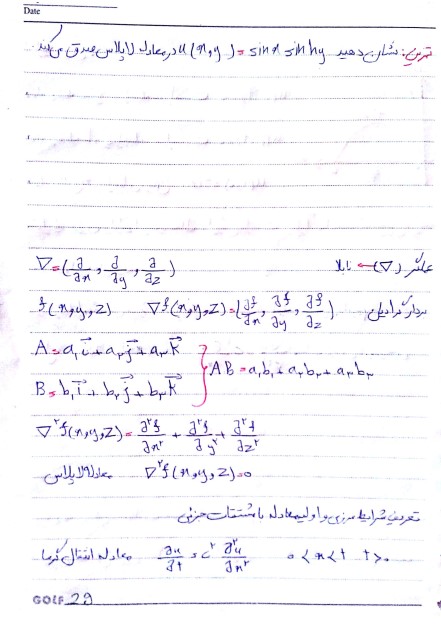 Date
تمرین: نشان دهید u(x,y) = sinx sinhy در معادله لاپلاس صدق می‌کند
∇=(∂/∂x , ∂/∂y , ∂/∂z) عملگر (∇) ← نابلا
f(x,y,z) ∇f(x,y,z)=(∂f/∂x , ∂f/∂y , ∂f/∂z) بردار گرادیان
A = a₁i⃗ + a₂j⃗ + a₃k⃗
AB = a₁b₁ + a₂b₂ + a₃b₃
B = b₁i⃗ + b₂j⃗ + b₃k⃗
∇²f(x,y,z) = ∂²f/∂x² + ∂²f/∂y² + ∂²f/∂z²
معادله لاپلاس ∇²f(x,y,z)=0
تعریف شرایط مرزی و اولیه معادله با مشتقات جزئی
معادله انتقال گرما ∂u/∂t = c² ∂²u/∂x² 0<x<1 t>0
GOLF 29